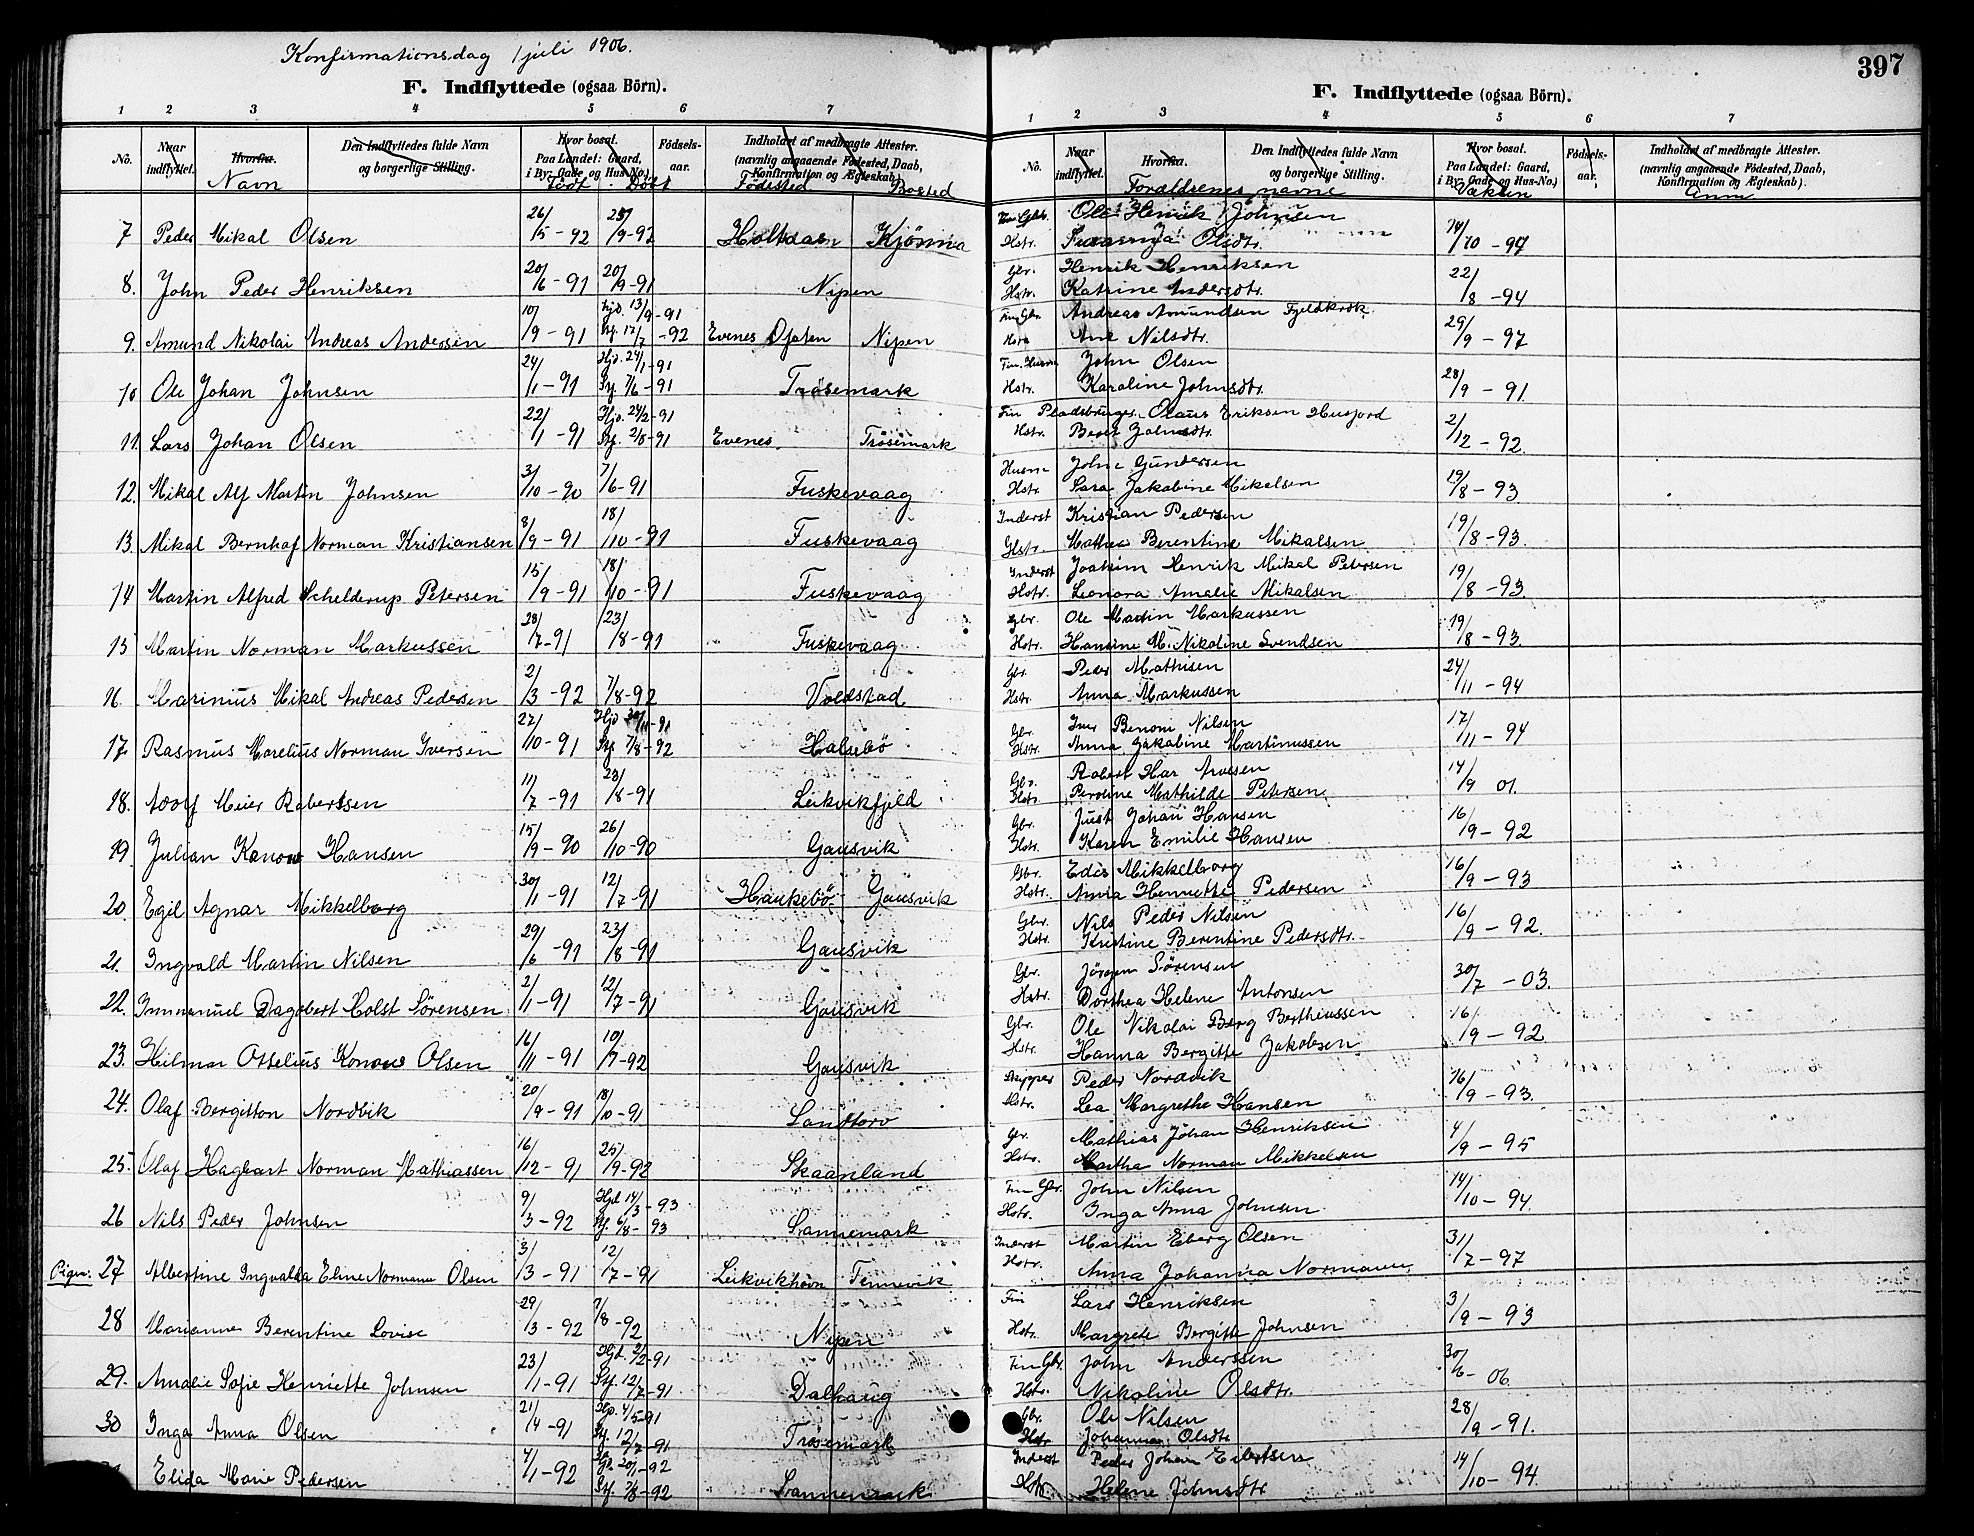 Konfirmationsdag 1 juli 1906.
F. Indflyttede (ogsaa Börn).
1 2 3 4 5 6 7
No. Naar indflyttet. Hvorfra. Den Indflyttedes fulde Navn og borgerlige Stilling. Hvor bosat. Paa Landet: Gaard, i By: Gade og Hus-No.) Fødsels-aar. Indholdet af medbragte Attester. (navnlig angaaende Fødested, Daab, Konfirmation og Ægteskab).
Navn Født Döbt Födested Bosted
7 Peder Mikal Olsen 26/5-92 25/9-92 Holtdalen Kjönna
8. John Peder Henriksen 20/6-91 20/9-91 Nipen
9. Amund Nikolai Andreas Andersen 10/9-91 hjd. 13/9-91 kf. 17/7-92 Evenes Ofoten Nipen
10 Ole Johan Johnsen 24/1-91 Hjd. 24/1-91 Stf. 7/6-91 Trösemark
11. Lars Johan Olsen 22/1-91 Hjd. 24/2-91 Stf. 2/8-91 Evenes Trösemark
12. Mikal Alf Martin Johnsen 3/10-90 7/6-91 Fuskevaag
13. Mikal Bernhof Norman Kristiansen 8/9-91 18/10-91 Fuskevaag
14 Martin Alfred Schelderup Petersen 15/9-91 18/10-91 Fuskevaag
15 Martin Norman Markussen 28/7-91 23/8-91 Fuskevaag
16. Marinius Mikal Andreas Pedersen 2/3-92 7/8-92 Voldstad
17. Rasmus Marelius Norman Iversen 22/10-91 Hjd 30/11-91 Stf 7/8-92 Halsebö
18. Adolf Meier Robertsen 11/7-91 23/8-91 Leikvikfjeld
19. Julian Konow Hansen 15/9-90 26/10-90 Gausvik
20. Egil Agnar Mikkelborg 30/1-91 12/7-91 Haukebö Gausvik
21. Ingvald Martin Nilsen 29/6-91 23/8-91 Gausvik
22. Immanuel Dagobert Holst Sörensen 2/1-91 12/7-91 Gausvik
23. Hilmar Otselius Konow Olsen 16/11-91 10/7-92 Gausvik
24. Olaf Bergitton Nordvik 20/9-91 18/10-91 Sandtorv
25. Olaf Hagbart Norman Mathiassen 16/12-91 25/9-92 Skaanland
26 Nils Peder Johnsen 9/3-92 Hjd 14/3-93 Stf. 6/8-93 Sannemark
Piger: 27 Albertine Ingvalda Eline Normann Olsen 3/3-91 12/7-91 Leikvikhavn Tennevik
28 Marianne Berentine Lovise 29/3-92 7/8-92 Nipen
29. Amalie Sofie Henriette Johnsen 23/1-91 Hjd. 2/2-91 Stf. 12/7-91 Dalhaug
30 Inga Anna Olsen 21/4-91 Hjd. 4/5-91 Stf. 12/7-91 Trösemark
Elida Marie Pedersen 4/1-92 Hjd. 20/1-92 Stf. 7/8-92 Sannemark
397
F. Indflyttede (ogsaa Börn).
1 2 3 4 5 6 7
No. Naar indflyttet. Hvorfra. Den Indflyttedes fulde Navn og borgerlige Stilling. Hvor bosat. Paa Landet: Gaard, i By: Gade og Hus-No.) Fødsels-aar. Indholdet af medbragte Attester. (navnlig angaaende Fødested, Daab, Konfirmation og Ægteskab).
Forældrenes navne Vakcin Anm
Fin Gbr. Ole Henrik Johnsen
Hstr. Olsdtr. 14/10-94
Gbr. Henrik Henriksen
Hstr. Katrine Andersdtr. 22/8-94
Fin Gbr. Andreas Amundsen Fjeldkrok
Hstr. Ane Nilsdtr. 29/9-97
Fin. Husm John Olsen
Hstr. Karoline Johnsdtr. 28/9-91
Fin Pladsbruger. Olaus Eriksen Husfjord
Hstr. Berit Johnsdtr. 2/12-92.
Husm John Gundersen
Hstr Sara Jakobine Mikalsen 19/8-93
Inderst Kristian Pedersen
Hstr. Mathea Berentine Mikalsen 19/8-93.
Inderst Joakim Henrik Mikal Petersen
Hstr. Leonora Amalie Mikalsen 19/8-93.
Gbr. Ole Martin Markussen
Hstr. Hansine M. Nikoline Svendsen 19/8-93.
Gbr. Peder Mathisen
Hstr. Anna Markussen 24/11-94
Gbr. Iver Benoni Nilsen
Hstr. Anna Jakobine Martinussen 17/11-94
Gbr. Robert Har Arvesen
Hstr Peroline Mathilde Petersen. 14/9 01.
Gbr. Just Johan Hansen
Hstr. Karen Emilie Hansen 16/9-92
Gbr. Edis Mikkelborg
Hstr. Anna Henriette Pedersen 16/9-93
Gbr. Nils Peder Nilsen
Hstr. Kristine Berentine Pedersdtr. 16/9-92.
Gbr. Jörgen Sörensen
Hstr. Dorthea Helene Antonsen 30/7-03.
Gbr. Ole Nikolai Berg Bertheussen
Hstr. Hanna Bergitte Jakobsen 16/9-92
Skipper Peder Nordvik
Hstr. Lea Margrethe Hansen 16/9-93.
Gbr. Mathias Johan Henriksen
Hstr. Martha Norman Mikkelsen 4/9-95
Fin Gbr. John Nilsen
Hstr. Inga Anna Johnsen 14/10-94.
Inderst Martin Eberg Olsen
Hstr. Anna Johanna Normann 31/7-97
Fin Lars Henriksen
Hstr. Margrete Bergitte Johnsen 3/9-93
Fin Gbr. John Anderssen
Hstr. Nikoline Olsdtr. 30/6-06.
Gbr. Ole Nilsen
Hstr Johanna Olsdtr 28/9-91.
Inderst Peder Johan Eilertsen
Hstr. Helene Johnsdtr 14/10-94.